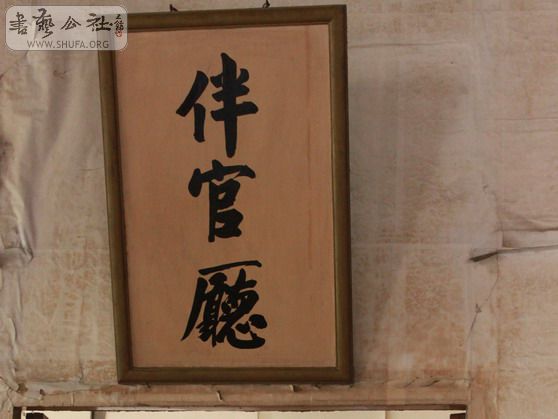 書藝公社
WWW.SHUFA.ORG
伴官廳